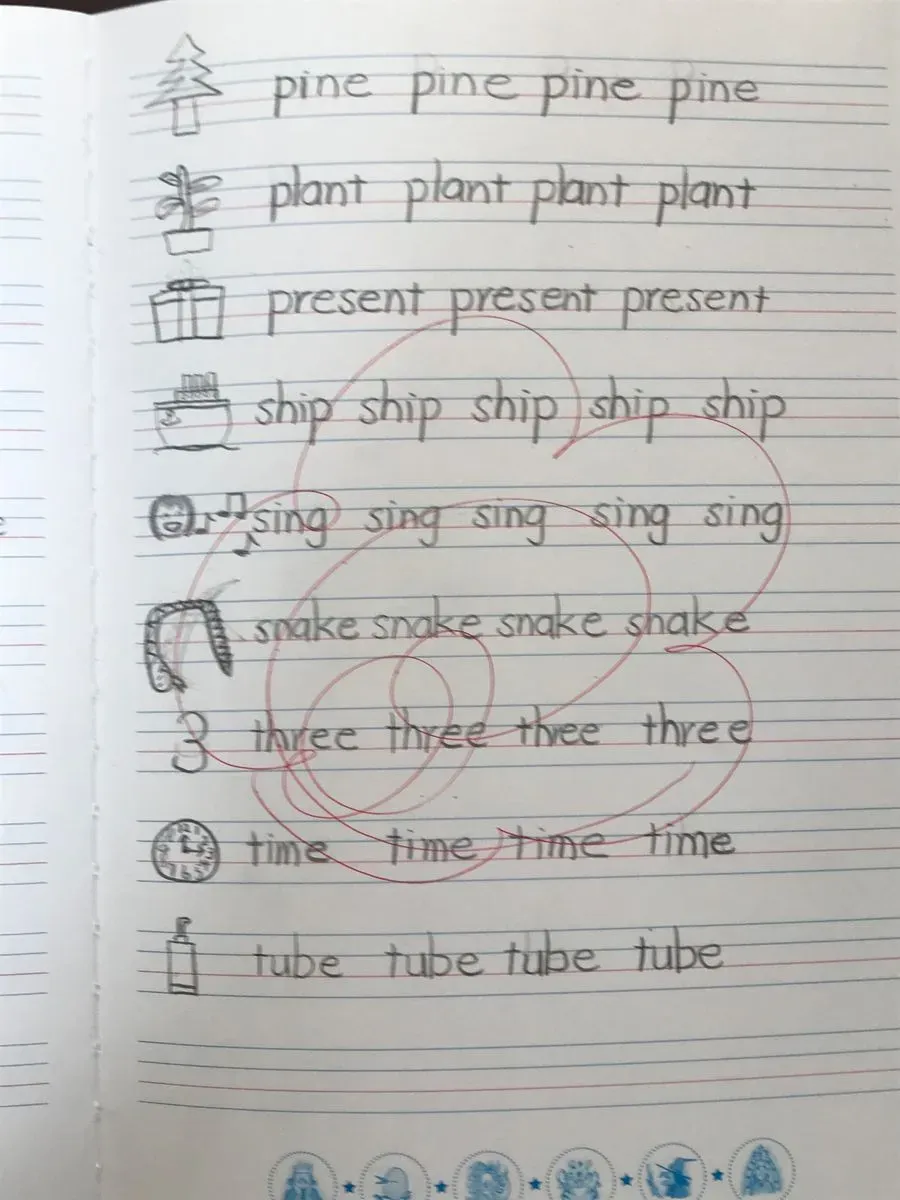 pine pine pine pine
plant plant plant plant
present present present
ship ship ship ship ship
sing sing sing sing sing
snake snake snake snake
3 three three three three
time time time time
tube tube tube tube